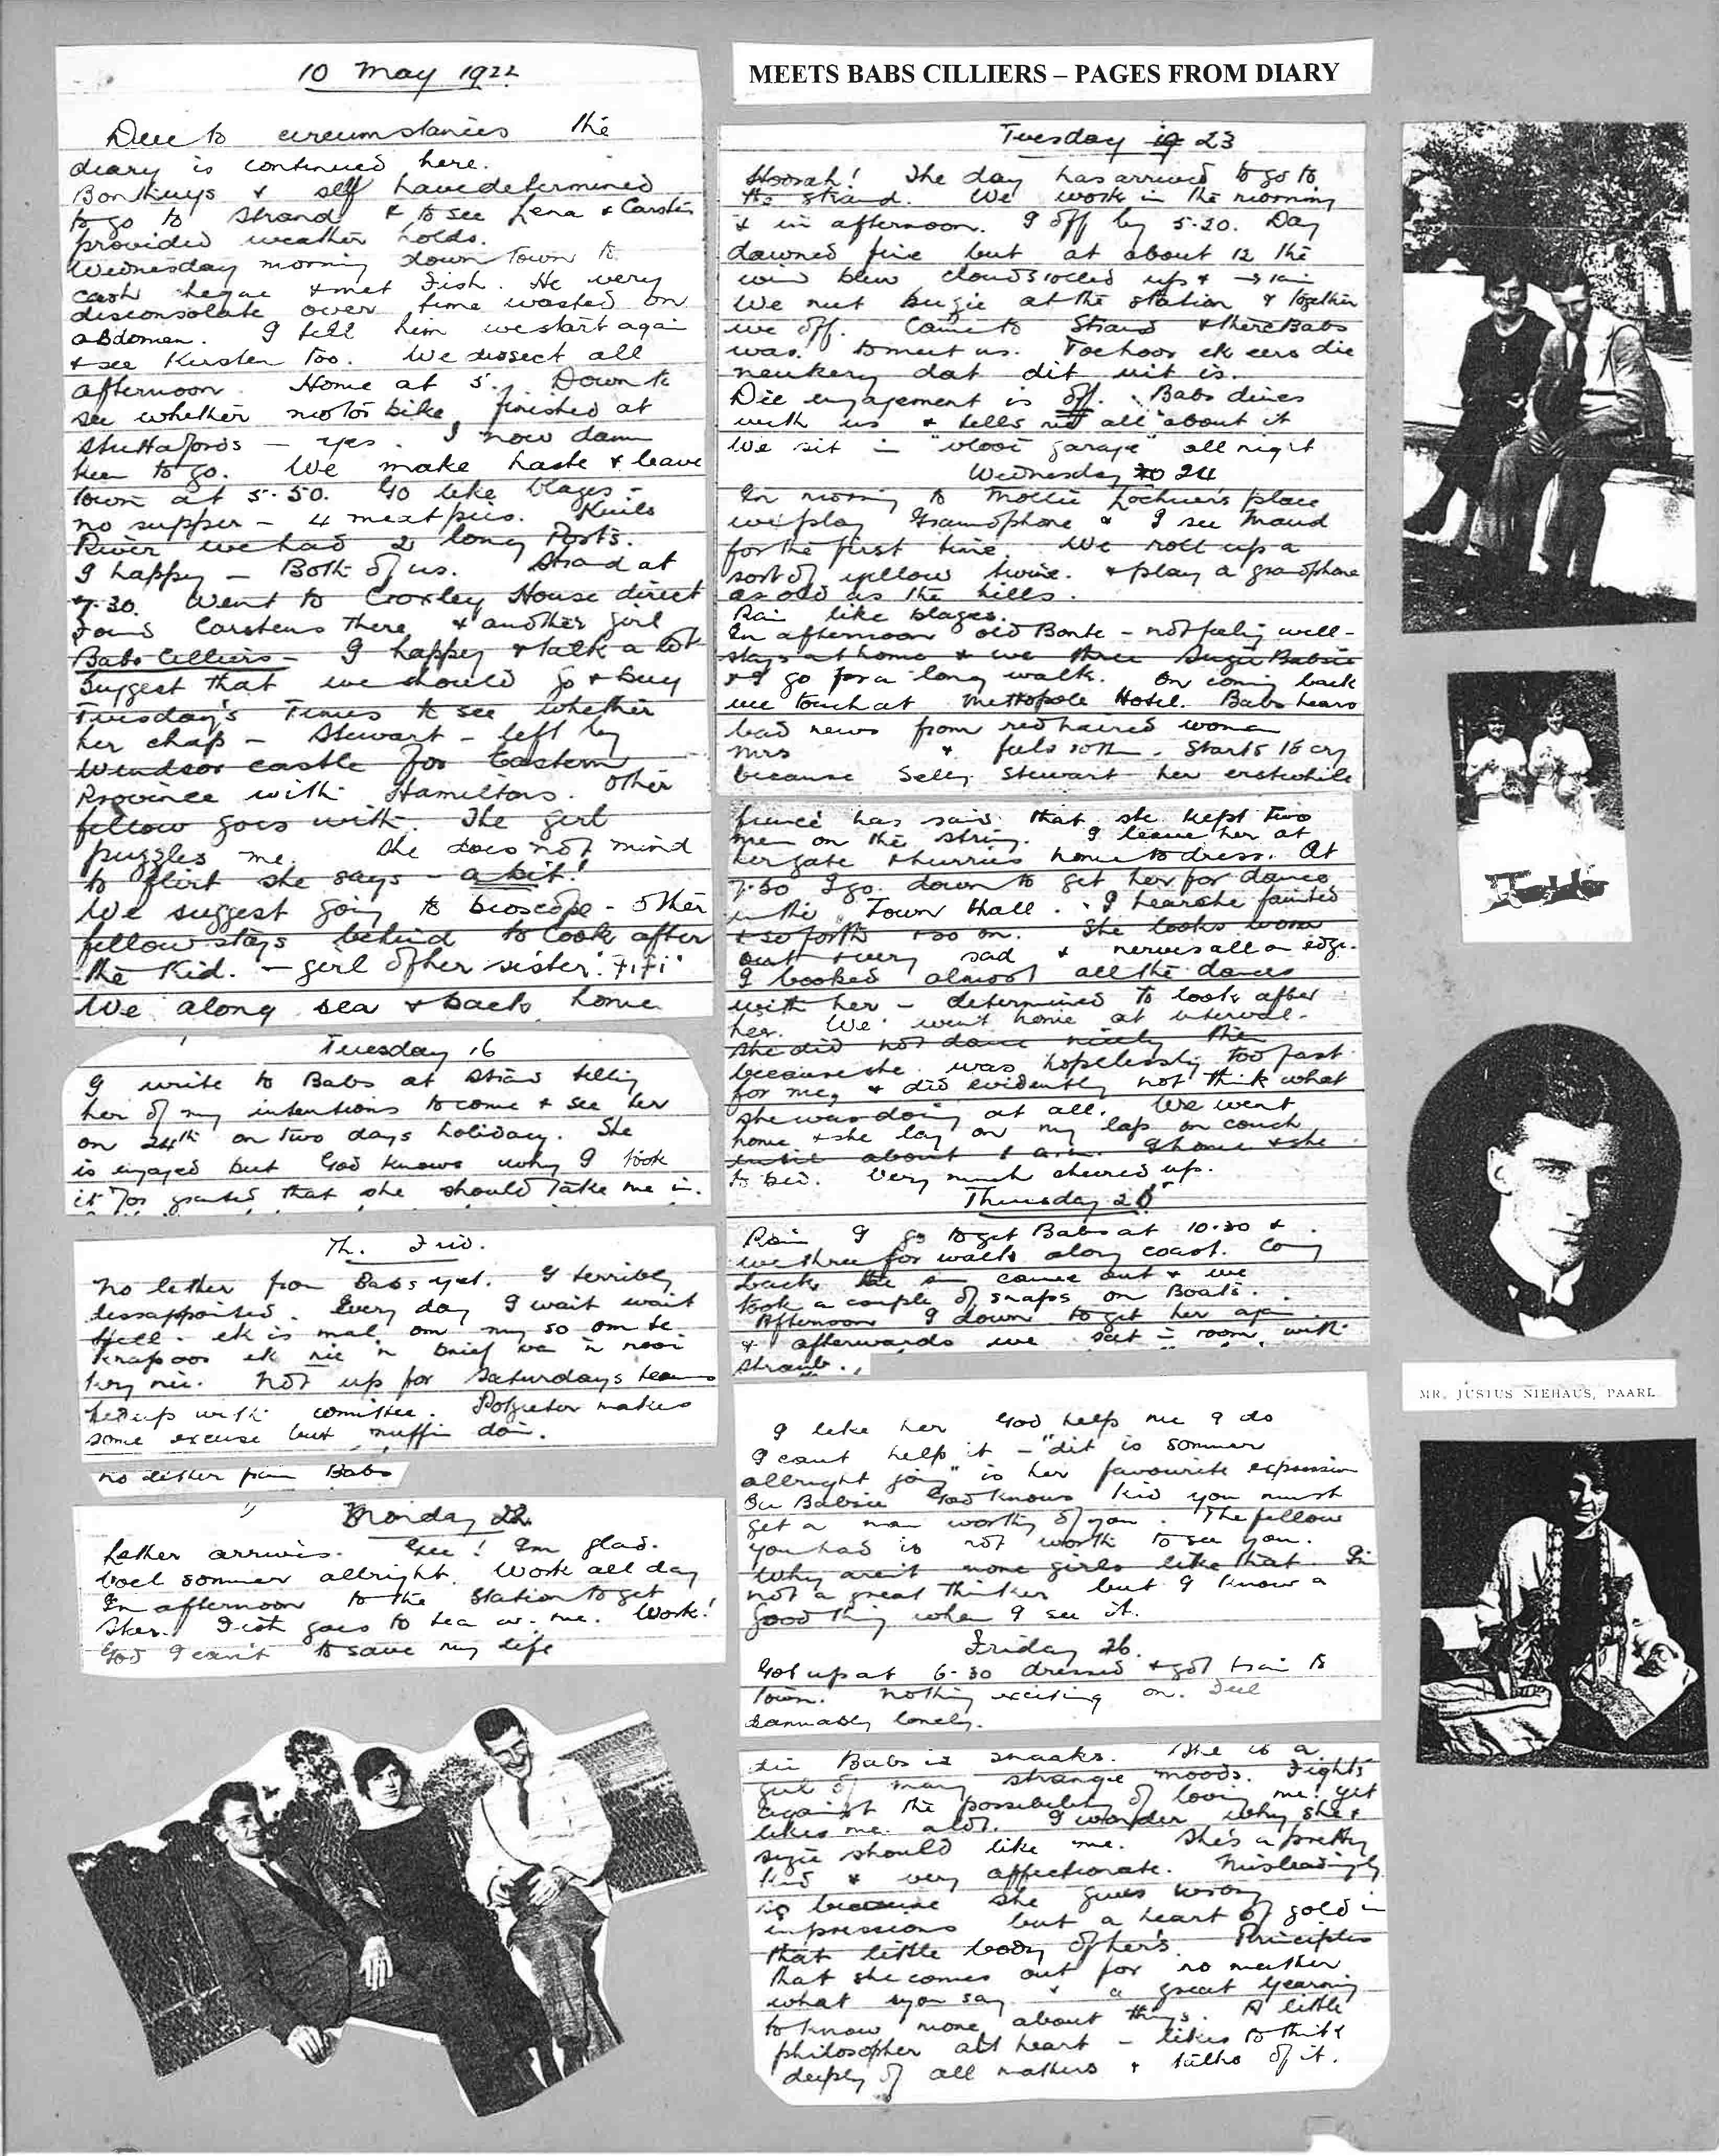 10 May 1922
Due to circumstances the
diary is continued here.
Bonthuys & self have determined
to go to Strand & to see Lena & Carstens
provided weather holds.
Wednesday morning down town to
cash cheque & met Fish. He very
disconsolate over time wasted on
abdomen. I tell him we start again
& see Kirsten too. We dissect all
afternoon. Home at 5. Down to
see whether motor bike finished at
Stuttafords – yes. I now damn
keen to go. We make haste & leave
town at 5.50. Go like blazes –
no supper – 4 meat pies. Kuils
River we had 2 long Ports.
I happy – Both of us. Strand at
7.30. Went to Croxley House direct
Found Carstens there & another girl
Babs Cilliers – I happy & talk a lot
Suggest that we should go & buy
Tuesday's Times to see whether
her chap – Stewart – left by
Windsor Castle for Eastern
Province with Hamiltons. Other
fellow goes with. The girl
puzzles me. She does not mind
to flirt she says – a bit!
We suggest going to bioscope – other
fellow stays behind to look after
the Kid. – girl of her sister. "Fifi"
We along sea & back home
Tuesday 16
I write to Babs at Strand telling
her of my intentions to come & see her
on 24th on two days holiday. She
is engaged but God knows why I took
it for granted that she should take me in.
Th. Frid.
No letter from Babs yet. I terribly
dissappointed. Every day I wait wait
Hell. ek is mal om my so om te
knap oor ek nie 'n brief van 'n nooi
kry nie. Not up for Saturdays team
with comittee. Potgieter makes
some excuse but muffin doin.
No letter from Babs
Monday 22
Letter arrives. Gee! I'm glad.
Voel sommer allright. Work all day
In afternoon to the Station to get
Fish goes to tea w. me. Work!
God I can't to save my life
MEETS BABS CILLIERS – PAGES FROM DIARY
Tuesday 19 23
Hoorah! The day has arrived to go to
the Strand. We work in the morning
& in afternoon. I off by 5.20. Day
dawned fine but at about 12 the
wind blew clouds rolled up & → rain
We met Suzie at the station & together
we off. Came to Strand & there Babs
was to meet us. Toe hoor ek eers die
neukery dat dit uit is.
Die engagement is off. Babs dines
with us & tells all about it
We sit in "vlooi garage" all night
Wednesday 20 24
In morning to Mollie Lochner's place
we play Gramophone & I see Maud
for the first time. We roll up a
sort of yellow twine. & play a gramophone
as old as the hills.
Rain like blazes.
In afternoon old Bonte – not feeling well –
stays at home & we three Suzie Babsie
& I go for a long walk. On coming back
we touch at Mettopole Hotel. Babs hears
bad news from red haired woman
Mrs & feels rotten. Starts to cry
because Selby Stewart her erstwhile
fiance has said that she kept two
men on the string. I leave her at
her gate & hurries home to dress. At
7.30 I go down to get her for dance
in the Town Hall. I hear she fainted
& so forth & so on. She looks worn
out & very sad & nerves all on edge.
I booked almost all the dances
with her – determined to look after
her. We went home at interval.
She did not dance nicely then
because she was hopelessly too fast
for me, & did evidently not think what
she was doing at all. We went
home & she lay on my lap on couch
until about 1 a.m. I home & she
to bed. Very much cheered up.
Thursday 25
Rain I go to get Babs at 10.30 &
we three for walk along coast. Comg
back the sun came out & we
took a couple of snaps on Boats.
Afternoon I down to get her again
& afterwards we sat in room with
Strand.
I like her God helps me I do
I cant help it – "dit is sommer
allright" is her favourite expression
Babsie God knows kid you must
get a man worthy of you. The fellow
you had is not worth to see you.
Why aren't more girls like that. I'm
not a great thinker but I know a
good thing when I see it.
Friday 26.
Got up at 6.30 dressed & got train to
town. Nothing exciting on. Feel
damnably lonely.
Babs is snaaks. She is a
girl of many strange moods. Fights
against the possibility of loving me: yet
likes me a lot. I wonder why she &
Suzie should like me. She's a pretty
kid & very affectionate. Misleadingly
so because she gives wrong
impressions but a heart of gold in
that little body of her's. Principles
that she comes out for no matter
what you say & a great yearning
to know more about things. A little
philosopher att heart – likes to think
deeply of all matters & talks of it.
MR. JUSTUS NIEHAUS, PAARL.